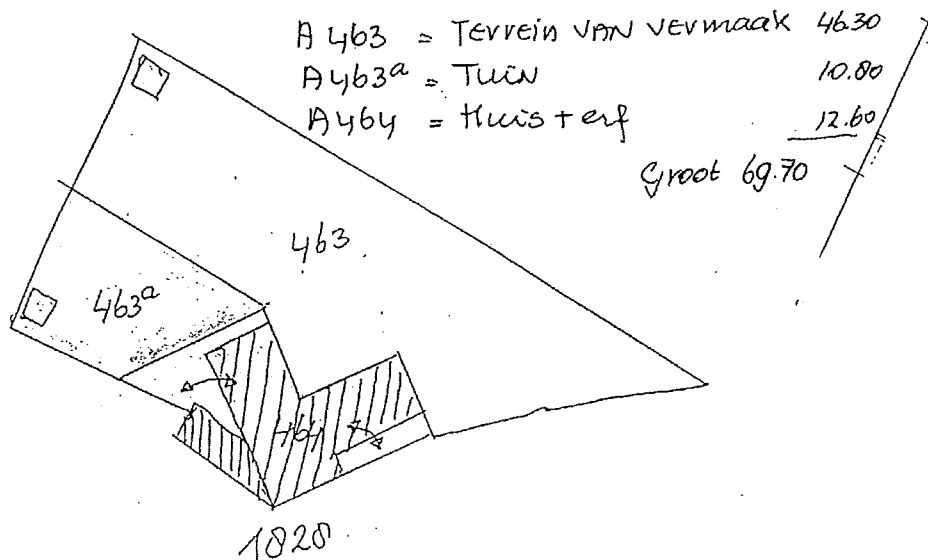 A 463 = Terrein VAN vermaak 46.30
A463a = Tuin 10.80
A464 = Huis + erf 12.60
Groot 69.70
463
463a
464
1828